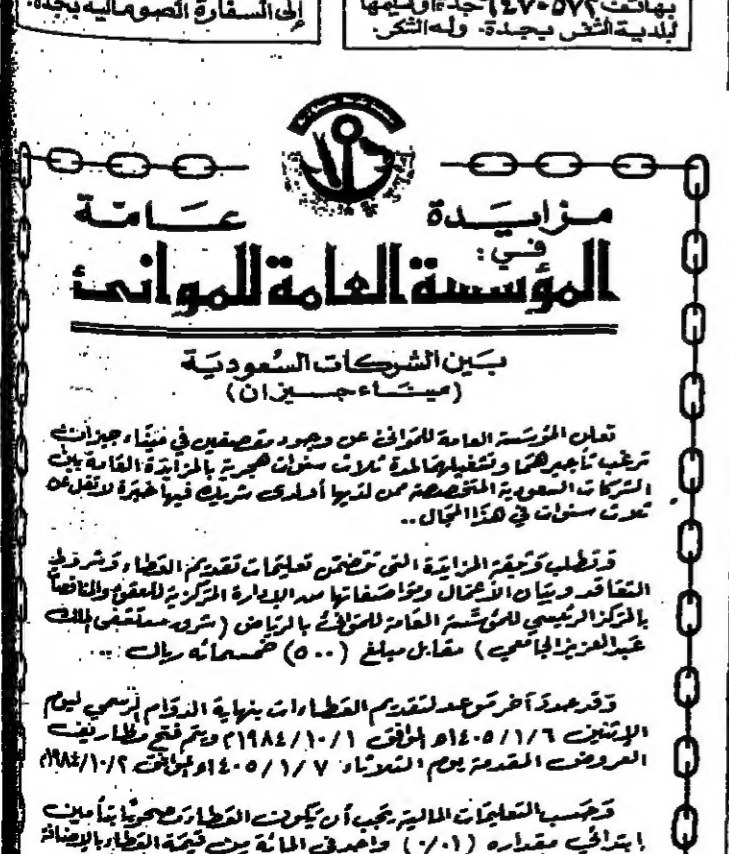 بهاتف ٦٤٧٠٥٧٢ جدة أو تسليمها
لبلدية الثغر بجدة. وله الشكر.
إلى السفارة الصومالية بجدة.
مزايدة عامة
في:
المؤسسة العامة للموانئ
بين الشركات السعودية
(ميناء جيزان)
تعلن المؤسسة العامة للموانئ عن وجود مقصفين في ميناء جيزان
ترغب تأجيرهما وتشغيلهما لمدة ثلاث سنوات هجرية بالمزايدة العامة بين
الشركات السعودية المتخصصة ممن لديها أو لدى شريك فيها خبرة لا تقل عن
ثلاث سنوات في هذا المجال..
وتطلب وثيقة المزايدة التي تتضمن تعليمات تقديم العطاء وشروط
التعاقد وبيان الأعمال ومواصفاتها من الإدارة المركزية للعقود والمناقصات
بالمركز الرئيسي للمؤسسة العامة للموانئ بالرياض (شرق مستشفى الملك
عبدالعزيز الجامعي) مقابل مبلغ (٥٠٠) خمسمائة ريال...
وقد حدد آخر موعد لتقديم العطاءات بنهاية الدوام الرسمي ليوم
الاثنين ١٤٠٥/١/٦هـ الموافق ١٩٨٤/١٠/١م ويتم فتح مظاريف
العروض المقدمة يوم الثلاثاء ١٤٠٥/١/٧هـ الموافق ١٩٨٤/١٠/٢م
وحسب التعليمات المالية يجب أن يكون العطاء مصحوبًا بتأمين
ابتدائي مقداره (١٪) واحد في المائة من قيمة العطاء بالإضافة